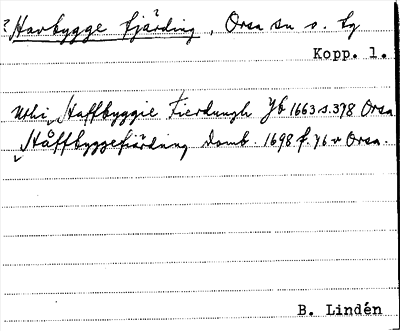 ? Havbygge fjärding, Orsa sn o. by
Kopp. l.
Uthi Staffbyggie Fierdungh Jb 1663 s. 378 Orsa
Ståffbyggefiärding Domb. 1698 f. 76 v Orsa.
B. Lindén